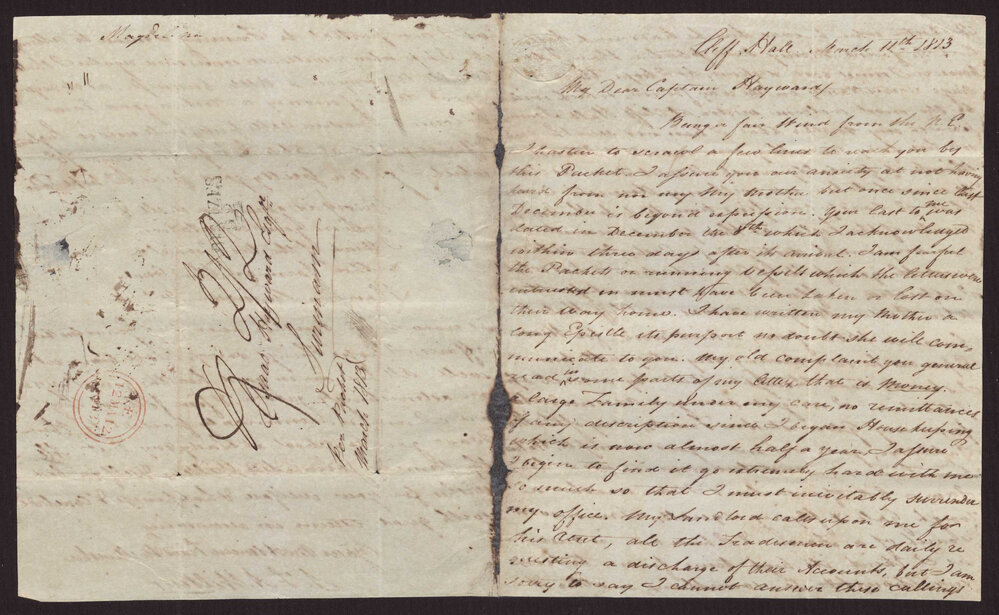 Cliff Hall March 11th 1813
My Dear Captain Hayward
Being a fair Wind from the N. E.
I hasten to scrawl a few lines to reach you by
this Packet. I assure you our anxiety at not having
heard from you my Mother but once since last
December is beyond expression. Your last to me was
dated in December the 8th which I acknowledged
within three days after its arrival. I am fearful
the Packets or running vessels which the letters were
interested in must have been taken or lost on
their way home. I have written my Mother a
long Epistle its purport no doubt she will com-
municate to you. My old complaint you general
read in some parts of my letter that is Money.
a large Family under my care, no remittances
of any description since I began Housekeeping
which is now almost half a year. I assure
I begin to find it go extremely hard with me
so much so that I must inevitably surrender
my office. My Landlord calls upon me for
his Rent, all the Tradesmen are daily re
questing a discharge of their Accounts, but I am
sorry to say I cannot answer these callings
Isaac Hayward Esqr
Surinam
Per Packet
March 1813